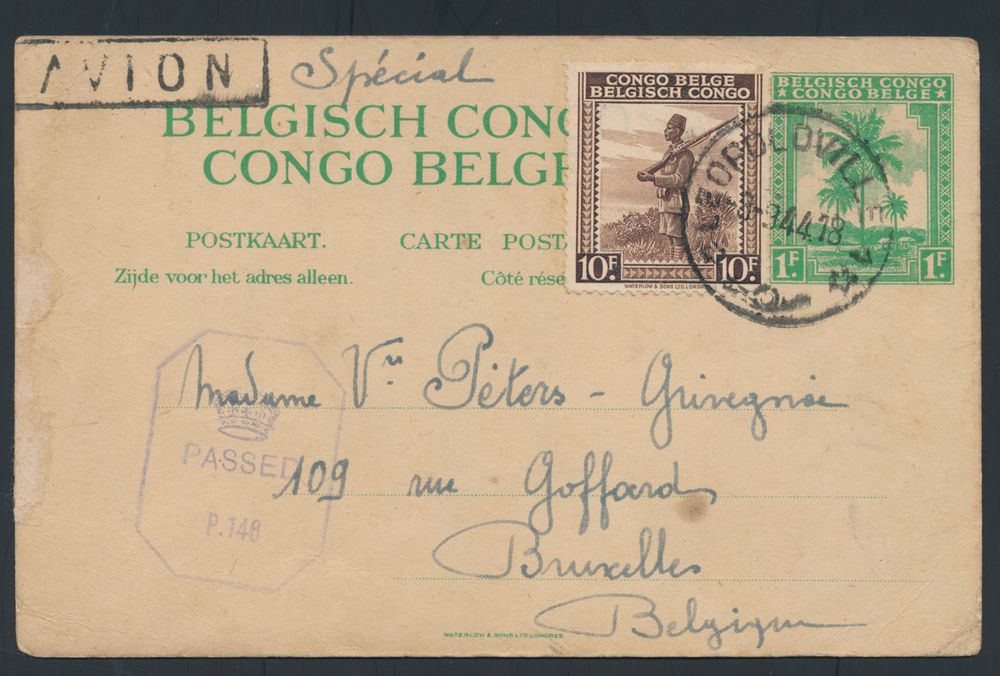 AVION
Spécial
BELGISCH CONG
CONGO BELGE
POSTKAART. CARTE POSTA
Zijde voor het adres alleen. Côté rése
CONGO BELGE
BELGISCH CONGO
10F. 10F.
WATERLOW & SONS LTD. LONDRE
BELGISCH CONGO
CONGO BELGE
1F. 1F.
LEOPOLDVILLE
-9 44 18
Madame Ve Péters - Grivegnée
PASSED
P.148
109 rue Goffard
Bruxelles
Belgique
WATERLOW & SONS LTD. LONDRES